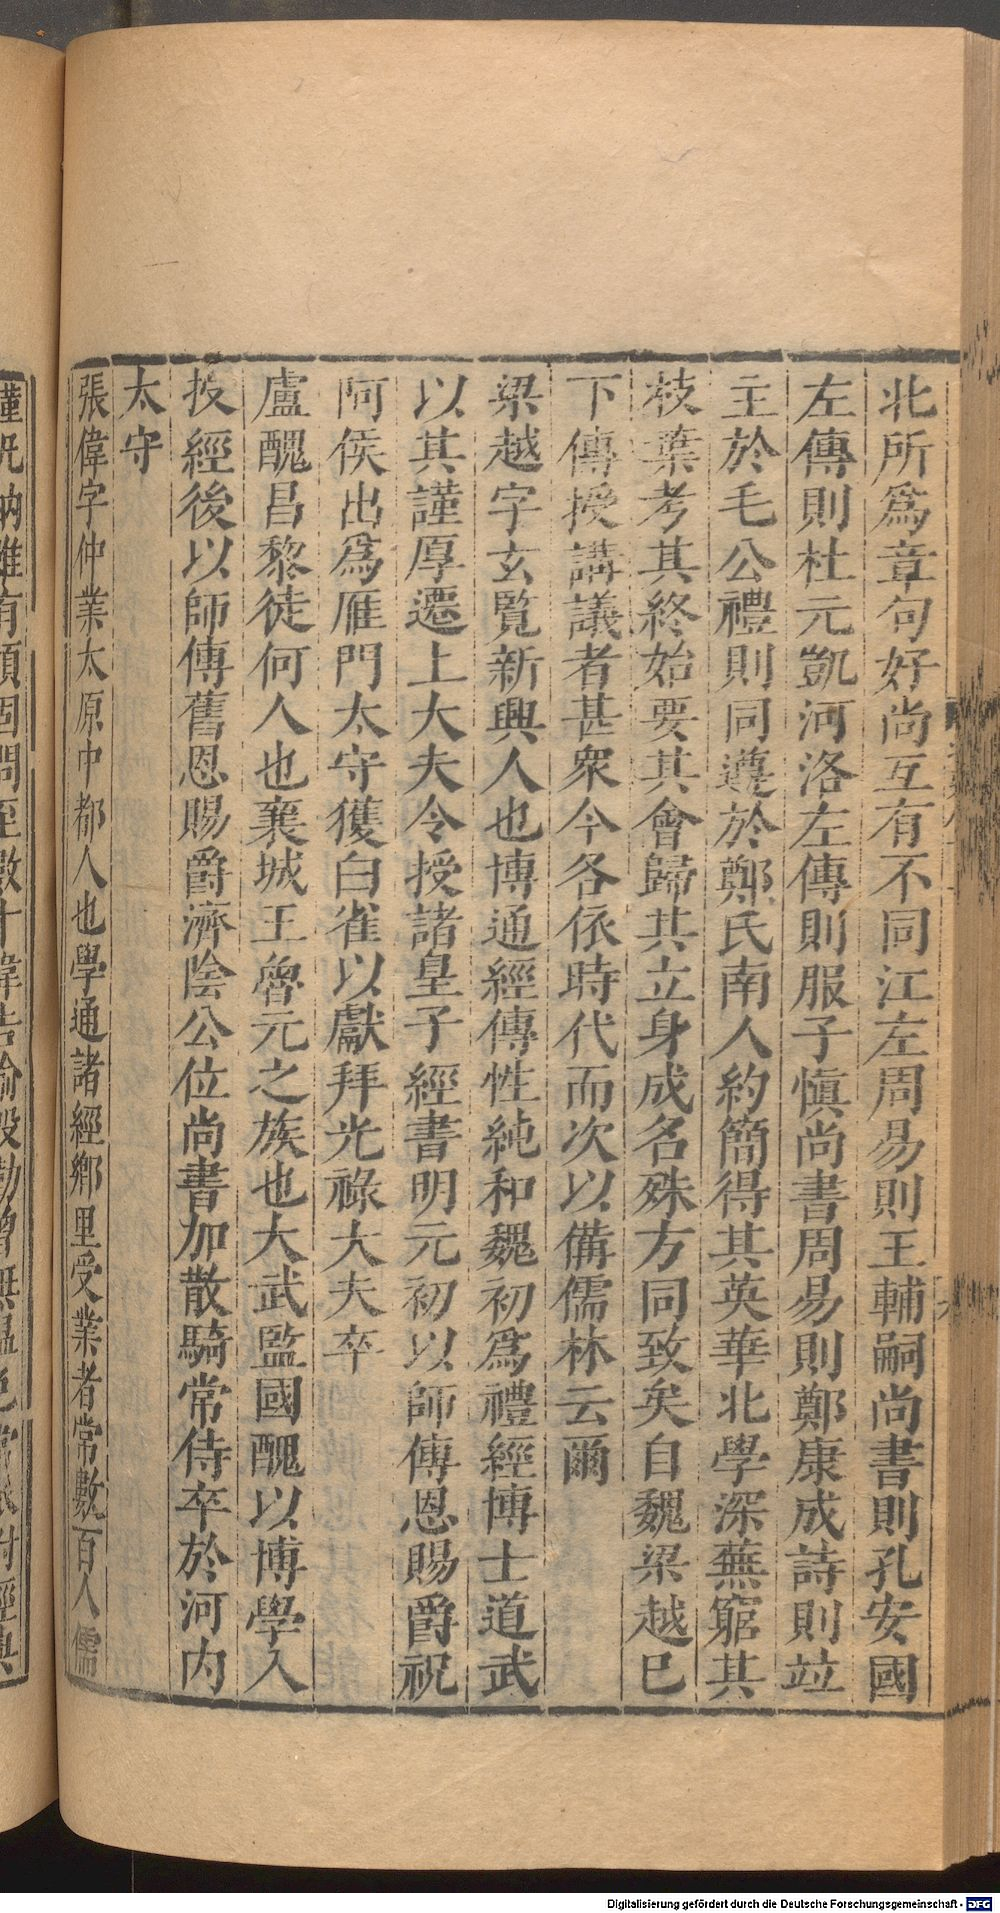 北所爲章句好尚互有不同江左周易則王輔嗣尚書則孔安國
左傳則杜元凱河洛左傳則服子愼尚書周易則鄭康成詩則竝
主於毛公禮則同遵於鄭氏南人約簡得其英華北學深蕪窮其
枝葉考其終始要其會歸其立身成名殊方同致矣自魏梁越已
下傳授講議者甚衆今各依時代而次以備儒林云爾
梁越字玄覽新興人也博通經傳性純和魏初爲禮經博士道武
以其謹厚遷上大夫令授諸皇子經書明元初以師傅恩賜爵祝
阿侯出爲雁門太守獲白雀以獻拜光祿大夫卒
盧醜昌黎徒何人也襄城王魯元之族也大武監國醜以博學入
授經後以師傅舊恩賜爵濟陰公位尚書加散騎常侍卒於河内
太守
張偉字仲業太原中都人也學通諸經鄉里受業者常數百人儒
Digitalisierung gefördert durch die Deutsche Forschungsgemeinschaft - DFG